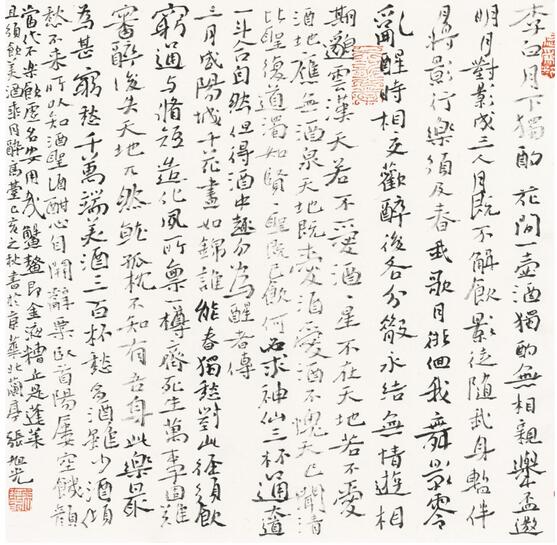 李白月下獨酌 花間一壺酒獨酌無相親舉盃邀
明月對影成三人月既不解飲影徒隨我身暫伴
月將影行樂須及春我歌月徘徊我舞影零
亂醒時相交歡醉後各分散永結無情遊相
期邈雲漢天若不愛酒酒星不在天地若不愛
酒地應無酒泉天地既愛酒愛酒不愧天已聞清
比聖復道濁如賢聖賢既已飲何必求神仙三杯通大道
一斗合自然但得酒中趣勿為醒者傳
三月咸陽城千花晝如錦誰能春獨愁對此徑須飲
窮通與脩短造化夙所稟一樽齊死生萬事固難
審醉後失天地兀然就孤枕不知有吾身此樂最
為甚窮愁千萬端美酒三百杯愁多酒雖少酒傾
愁不來所以知酒聖酒酣心自開辭粟臥首陽屢空饑顏
當代不樂飲虛名安用哉蟹螯即金液糟丘是蓬萊
且須飲美酒乘月醉高臺己亥之秋書於京華北蘭亭 張旭光